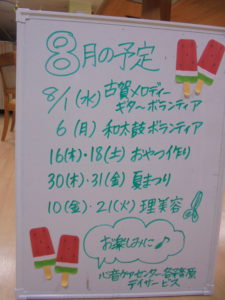 8月の予定
8/1(水)古賀メロディー
ギターボランティア
6(月)和太鼓ボランティア
16(木)・18(土)おやつ作り
30(木)・31(金)夏まつり
10(金)・21(火)理美容
お楽しみに♪
心音ケアセンター
デイサービス